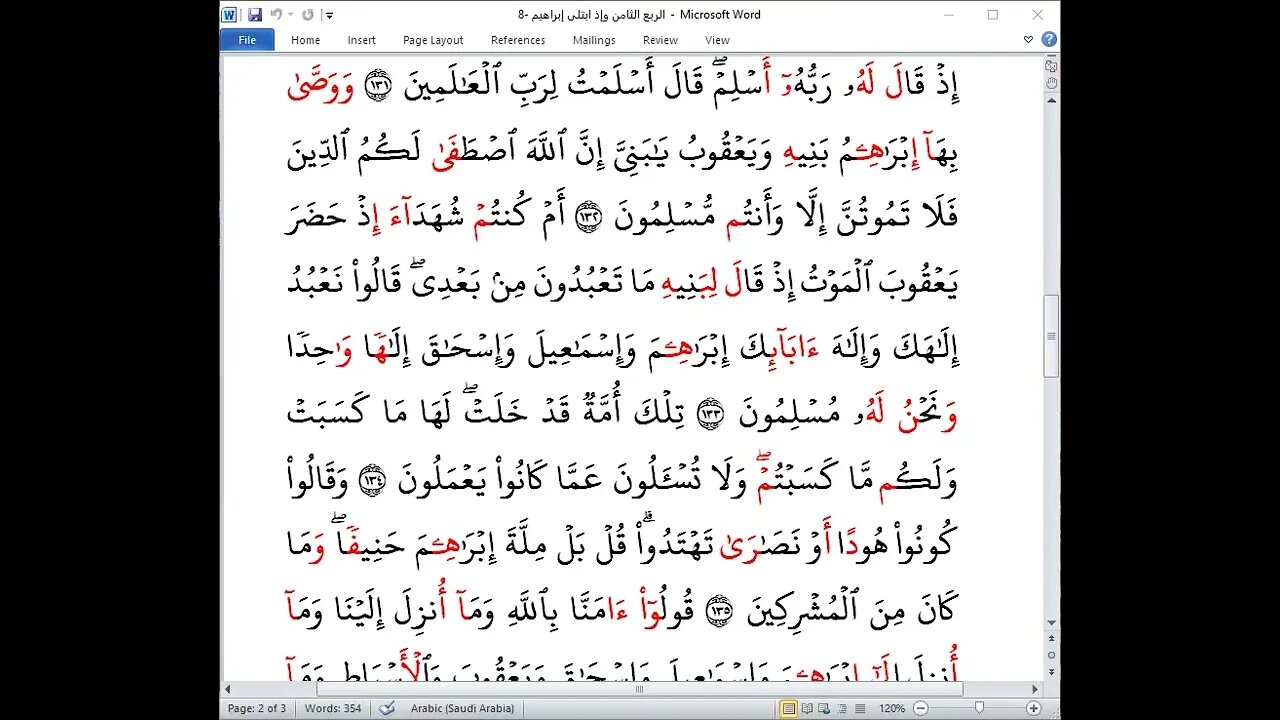 8- الربع الثامن وإذ ابتلى إبراهيم - Microsoft Word
File Home Insert Page Layout References Mailings Review View
إِذْ قَالَ لَهُۥ رَبُّهُۥٓ أَسْلِمْۖ قَالَ أَسْلَمْتُ لِرَبِّ ٱلْعَـٰلَمِينَ ١٣١ وَوَصَّىٰ
بِهَآ إِبْرَٰهِـۧمُ بَنِيهِ وَيَعْقُوبُ يَـٰبَنِىَّ إِنَّ ٱللَّهَ ٱصْطَفَىٰ لَكُمُ ٱلدِّينَ
فَلَا تَمُوتُنَّ إِلَّا وَأَنتُم مُّسْلِمُونَ ١٣٢ أَمْ كُنتُمْ شُهَدَآءَ إِذْ حَضَرَ
يَعْقُوبَ ٱلْمَوْتُ إِذْ قَالَ لِبَنِيهِ مَا تَعْبُدُونَ مِنۢ بَعْدِىۖ قَالُوا۟ نَعْبُدُ
إِلَـٰهَكَ وَإِلَـٰهَ ءَابَآئِكَ إِبْرَٰهِـۧمَ وَإِسْمَـٰعِيلَ وَإِسْحَـٰقَ إِلَـٰهًا وَٰحِدًا
وَنَحْنُ لَهُۥ مُسْلِمُونَ ١٣٣ تِلْكَ أُمَّةٌ قَدْ خَلَتْۖ لَهَا مَا كَسَبَتْ
وَلَكُم مَّا كَسَبْتُمْۖ وَلَا تُسْـَٔلُونَ عَمَّا كَانُوا۟ يَعْمَلُونَ ١٣٤ وَقَالُوا۟
كُونُوا۟ هُودًا أَوْ نَصَـٰرَىٰ تَهْتَدُوا۟ۗ قُلْ بَلْ مِلَّةَ إِبْرَٰهِـۧمَ حَنِيفًاۖ وَمَا
كَانَ مِنَ ٱلْمُشْرِكِينَ ١٣٥ قُولُوٓا۟ ءَامَنَّا بِٱللَّهِ وَمَآ أُنزِلَ إِلَيْنَا وَمَآ
أُنزِلَ إِلَىٰٓ إِبْرَٰهِـۧمَ وَإِسْمَـٰعِيلَ وَإِسْحَـٰقَ وَيَعْقُوبَ وَٱلْأَسْبَاطِ وَمَآ
Page: 2 of 3 Words: 354 Arabic (Saudi Arabia) 120%